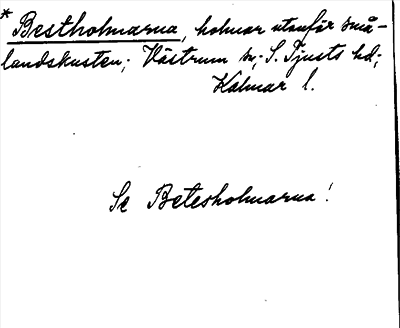 * Bestholmarna, holmar utanför små-
landskusten; Västrum sn; S. Tjusts hd;
Kalmar l.
Se Betesholmarna!